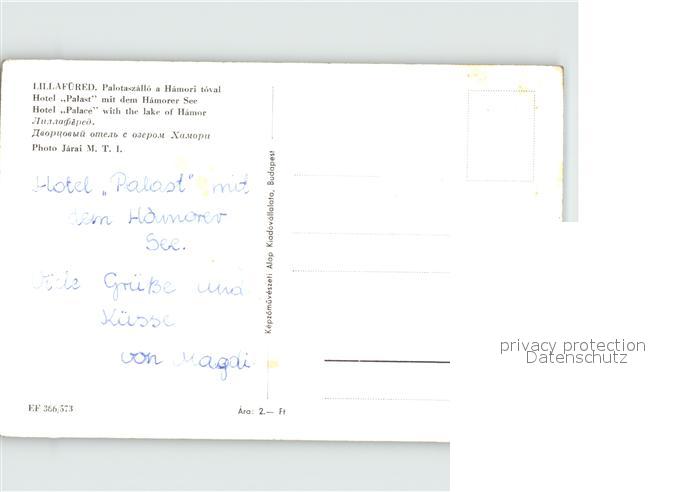 LILLAFÜRED. Palotaszálló a Hámori tóval
Hotel „Palast" mit dem Hámorer See
Hotel „Palace" with the lake of Hámor
Лиллафюред.
Дворцовый отель с озером Хамори
Photo Járai M. T. I.
Hotel „Palast" mit
dem Hámorer
See.
Viele Grüße und
Küsse
von Magdi
EF 366/573
Képzőművészeti Alap Kiadóvállalata, Budapest
Ára: 2.— Ft
privacy protection
Datenschutz